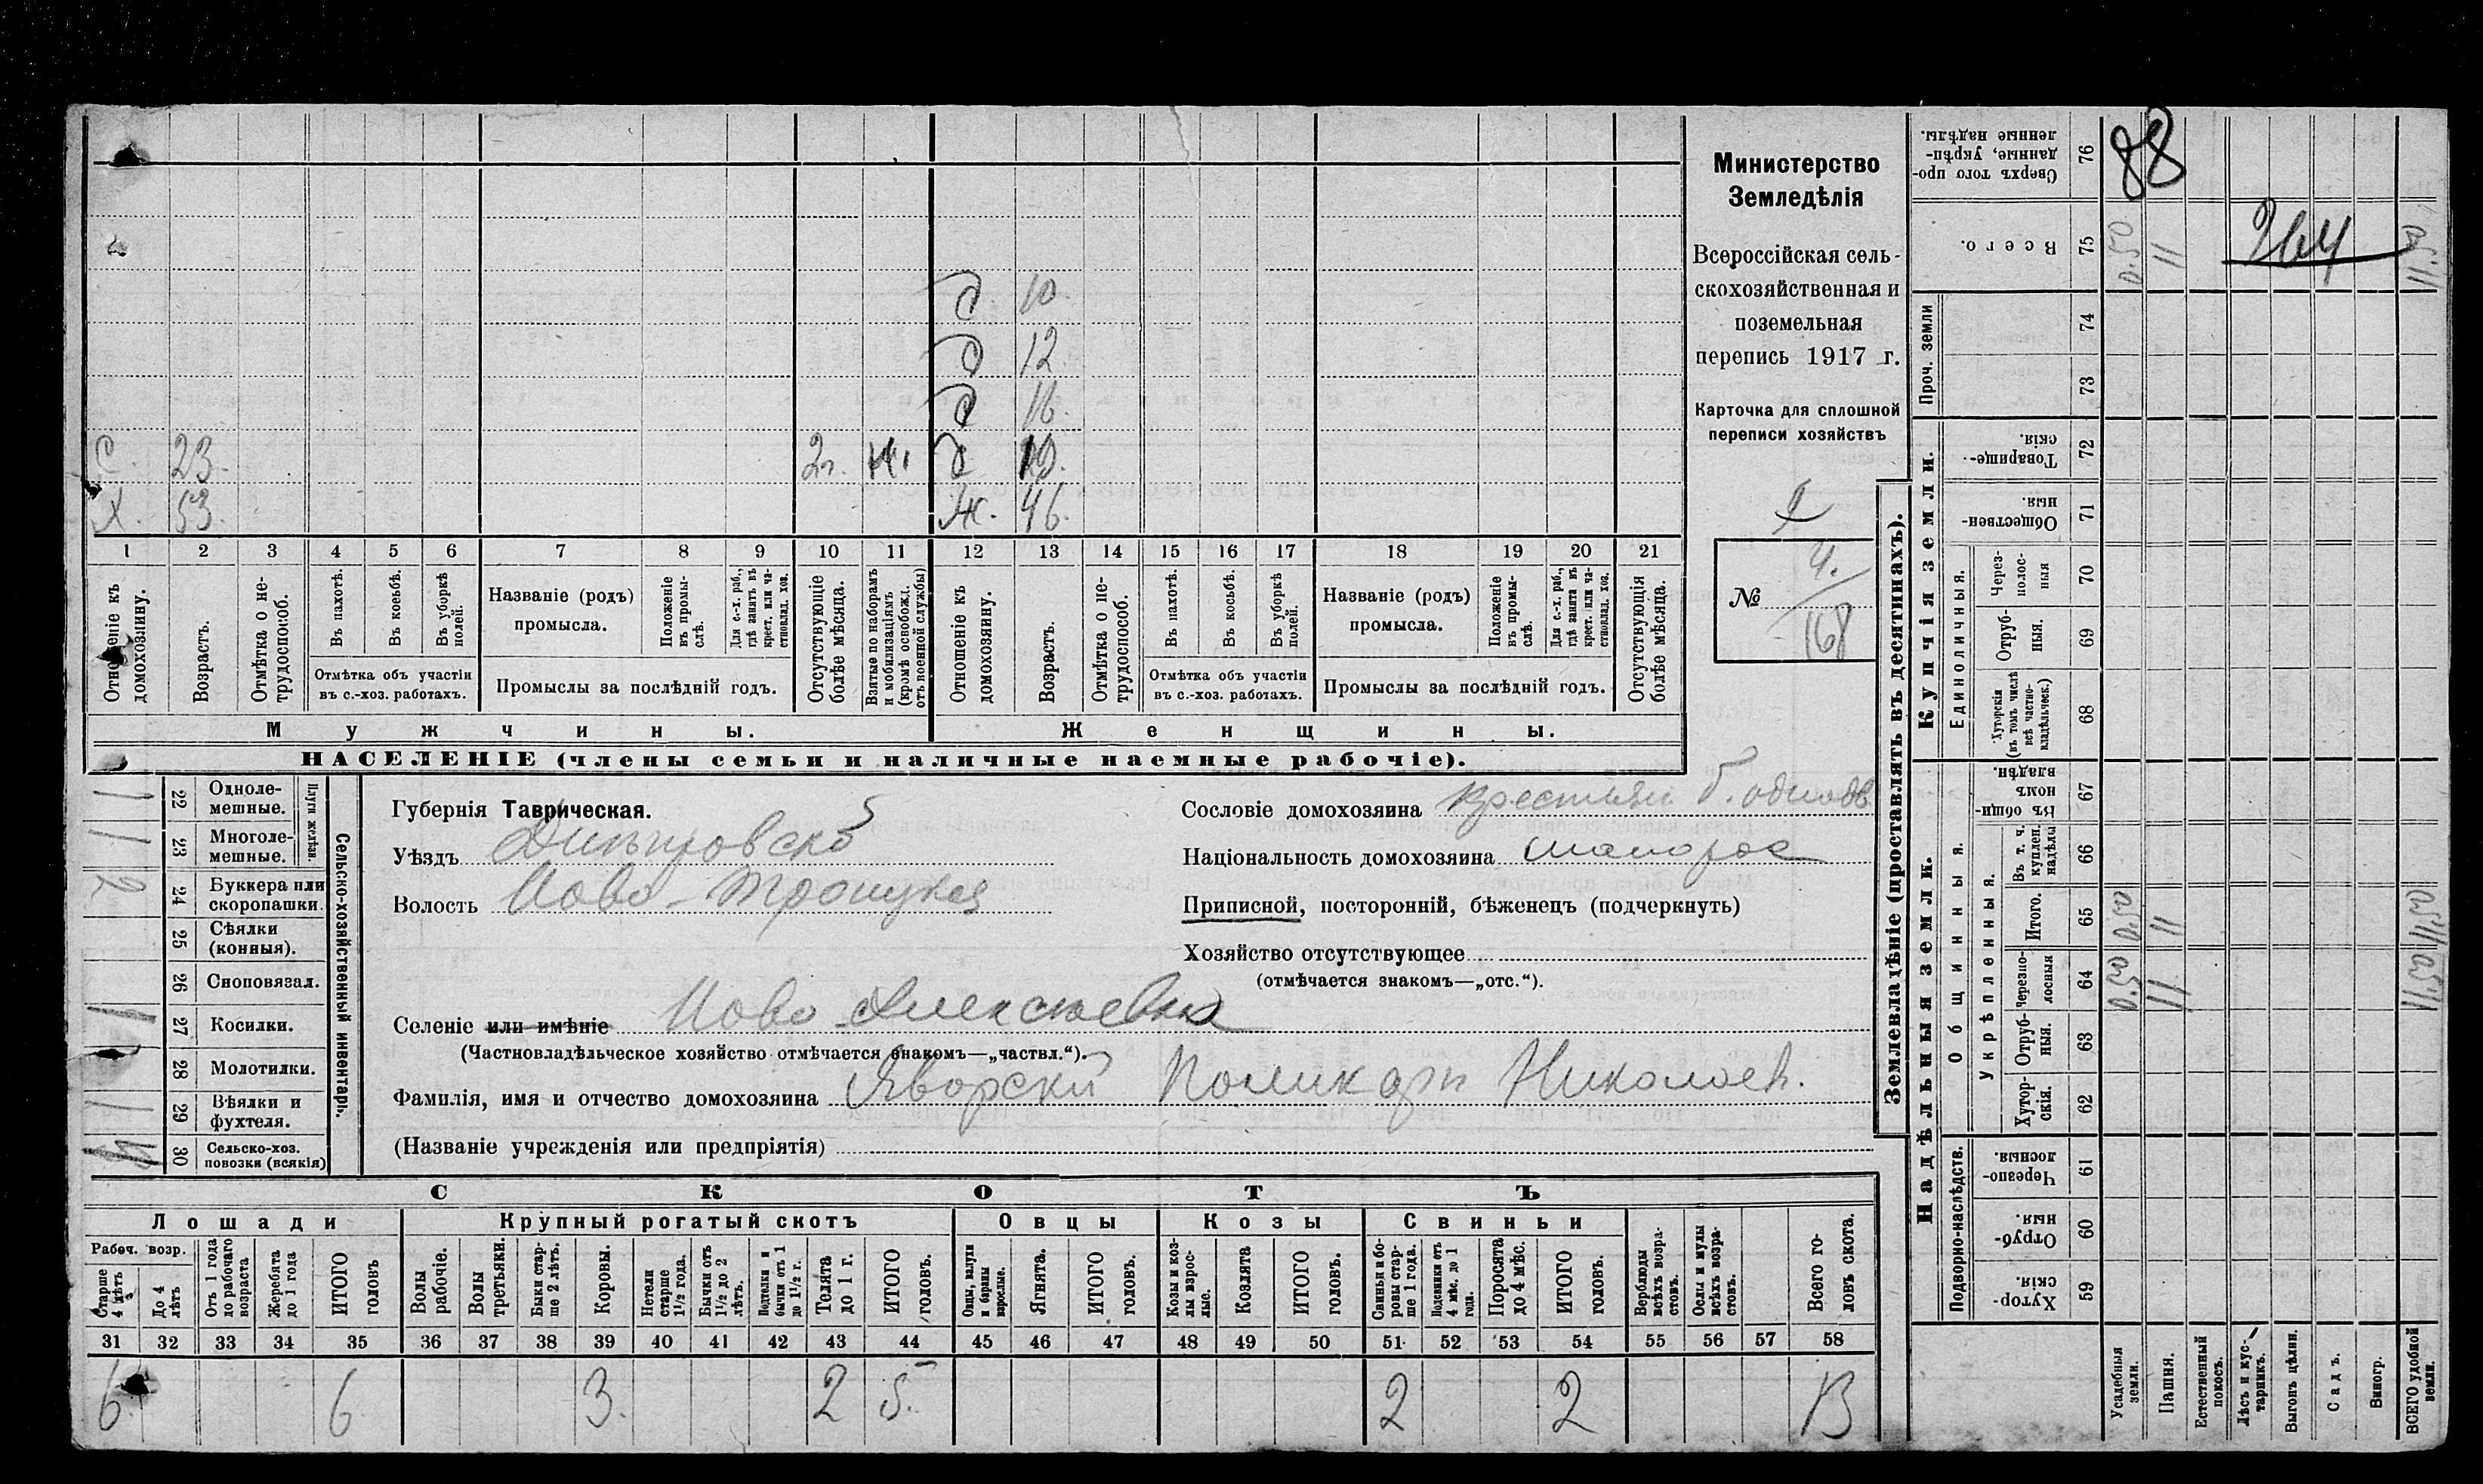 Министерство
Земледѣлія
Всероссійская сель-
скохозяйственная и
поземельная
перепись 1917 г.
Карточка для сплошной
переписи хозяйствъ
№ 4./168
д 10.
д 12
д 16.
С. 23. 2г. д 19.
Х. 53. Ж. 46.
1 2 3 4 5 6 7 8 9 10 11 12 13 14 15 16 17 18 19 20 21
Отношеніе къ домохозяину.
Возрастъ.
Отмѣтка о не-трудоспособ.
Въ пахотѣ.
Въ косьбѣ.
Въ уборкѣ полей.
Отмѣтка объ участіи
въ с.-хоз. работахъ.
Названіе (родъ)
промысла.
Положеніе въ промы-слѣ.
Для с.-х. раб., гдѣ занятъ въ крест. или ча-стновлад. хоз.
Промыслы за послѣдній годъ.
Отсутствующіе болѣе мѣсяца.
Взятые по наборамъ и мобилизаціямъ (кромѣ освобожд. отъ военной службы)
Отношеніе къ домохозяину.
Возрастъ.
Отмѣтка о не-трудоспособ.
Въ пахотѣ.
Въ косьбѣ.
Въ уборкѣ полей.
Отмѣтка объ участіи
въ с.-хоз. работахъ.
Названіе (родъ)
промысла.
Положеніе въ промы-слѣ.
Для с.-х. раб., гдѣ занята въ крест. или ча-стновлад. хоз.
Промыслы за послѣдній годъ.
Отсутствующія болѣе мѣсяца.
Мужчины. Женщины.
НАСЕЛЕНІЕ (члены семьи и наличные наемные рабочіе).
22 Одноле-мешные.
23 Многоле-мешные.
Плуги желѣзн.
24 Буккера или скоропашки.
25 Сѣялки (конныя).
26 Сноповязал.
27 Косилки.
28 Молотилки.
29 Вѣялки и фухтеля.
30 Сельско-хоз. повозки (всякія)
Сельско-хозяйственный инвентарь.
Губернія Таврическая.
Уѣздъ Днѣпровскій
Волость Ново-Троицкая
Сословіе домохозяина крестьян
Національность домохозяина малорос
Приписной, посторонній, бѣженецъ (подчеркнуть)
Хозяйство отсутствующее
(отмѣчается знакомъ—„отс.“).
Селеніе или имѣніе Ново Алексеевка
(Частновладѣльческое хозяйство отмѣчается знакомъ—„частвл.“).
Фамилія, имя и отчество домохозяина Яворскій Поликарп Николаев.
(Названіе учрежденія или предпріятія)
СКОТЪ
Лошади Крупный рогатый скотъ Овцы Козы Свиньи
Рабоч. возр.
Старше 4 лѣтъ
До 4 лѣтъ
Отъ 1 года до рабочаго возраста
Жеребята до 1 года
ИТОГО головъ
Волы рабочіе.
Волы третьяки.
Быки стар-ше 2 лѣтъ.
Коровы.
Нетели старше 1½ года.
Бычки отъ 1½ до 2 лѣтъ.
Подтелки и бычки отъ 1 до 1½ г.
Телята до 1 г.
ИТОГО головъ.
Овцы, валухи и бараны взрослые.
Ягнята.
ИТОГО головъ.
Козы и коз-лы взрос-лые.
Козлята
ИТОГО головъ.
Свиньи и бо-ровы стар-ше 1 года.
Подсвинки отъ 4 мѣс. до 1 года.
Поросята до 4 мѣс.
ИТОГО головъ.
Верблюды всѣхъ возра-стовъ.
Ослы и мулы всѣхъ возра-стовъ.
Всего го-ловъ скота.
31 32 33 34 35 36 37 38 39 40 41 42 43 44 45 46 47 48 49 50 51 52 53 54 55 56 57 58
6 6 3. 2 5. 2 2 13
Землевладѣніе (проставлять въ десятинахъ).
Надѣльныя земли. Купчія земли. Проч. земли
Подворно-наслѣдств. Общинныя. Укрѣпленныя. Единоличныя.
Сверхъ того про-данные, укрѣп-ленные надѣлы. 76 88
Всего. 75 0.50 11 264 11.50
74
73
Товарище-скія. 72
Обществен-ныя. 71
Через-полос-ныя 70
Отруб-ныя. 69
Хуторскія (въ томъ числѣ всѣ частно-владѣльческ.) 68
Въ общи-номъ владѣн. 67
Въ т. ч. куплен. надѣлы 66
Итого. 65 0.50 11 11.50
Черезпо-лосныя 64 0.50 11 11.50
Отруб-ныя. 63
Хутор-скія. 62
Черезпо-лосныя. 61
Отруб-ныя. 60
Хутор-скія. 59
Усадебныя земли.
Пашня.
Естественный покосъ.
Лѣсъ и кус-тарникъ.
Выгонъ цѣлин.
Садъ.
Виногр.
ВСЕГО удобной земли.